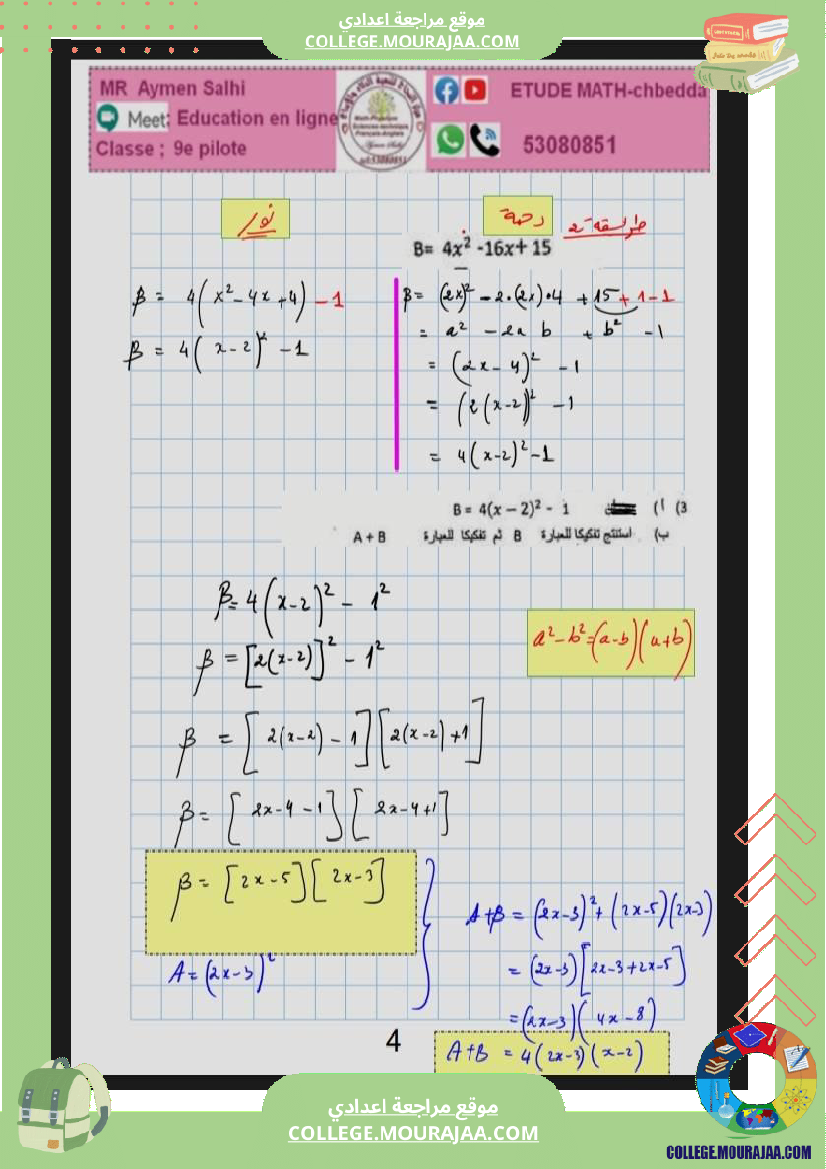 موقع مراجعة اعدادي
COLLEGE.MOURAJAA.COM
MR Aymen Salhi
Meet: Education en ligne
Classe ; 9e pilote
ETUDE MATH-chbedda
53080851
نور
رحمة
طريقة 2
B= 4x² -16x+ 15
β = 4(x² - 4x + 4) - 1
β = 4(x-2)² - 1
β = (2x)² - 2·(2x)·4 + 15 + 1 - 1
= a² - 2a b + b² - 1
= (2x - 4)² - 1
= (2(x-2))² - 1
= 4(x-2)² - 1
3) أ) B = 4(x – 2)² - 1
ب) استنتج تفكيكا للعبارة B ثم تفكيكا للعبارة A + B
β = 4(x-2)² - 1²
β = [2(x-2)]² - 1²
a² - b² = (a-b)(a+b)
β = [2(x-2) - 1][2(x-2) + 1]
β = [2x-4-1][2x-4+1]
β = [2x-5][2x-3]
A = (2x-3)²
A+β = (2x-3)² + (2x-5)(2x-3)
= (2x-3)[2x-3+2x-5]
= (2x-3)(4x-8)
A+B = 4(2x-3)(x-2)
4
موقع مراجعة اعدادي
COLLEGE.MOURAJAA.COM
COLLEGE.MOURAJAA.COM